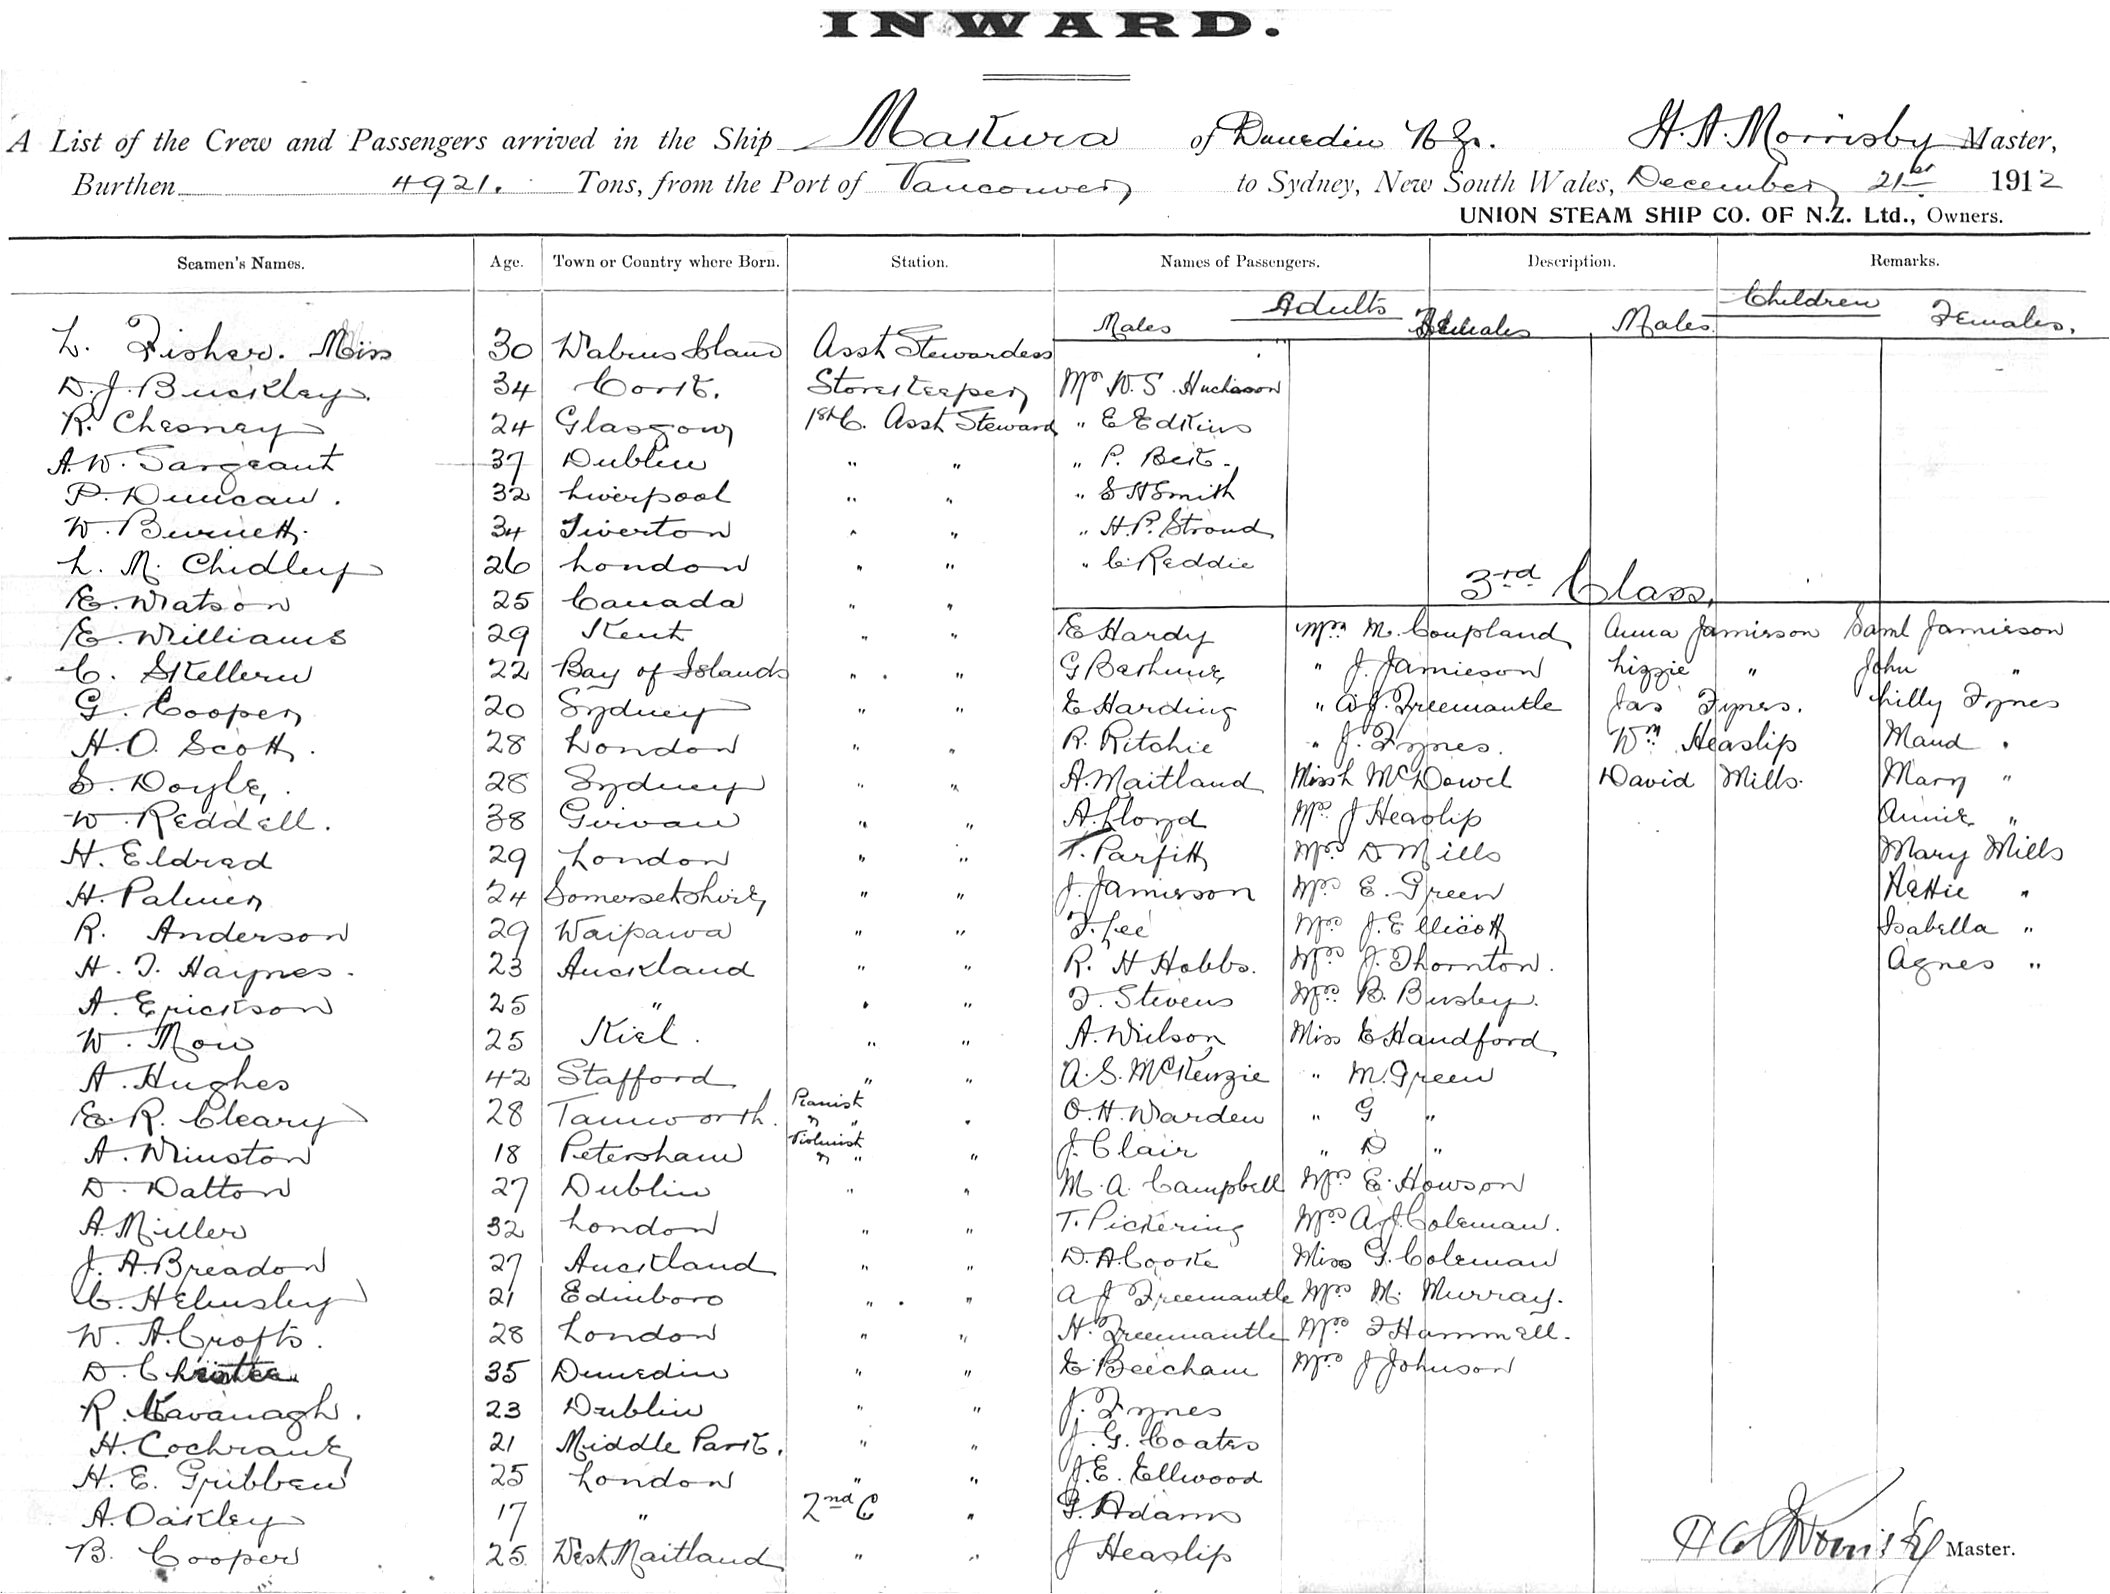 INWARD.
A List of the Crew and Passengers arrived in the Ship Makura of Dunedin N Z. H. A. Morrisby Master,
Burthen 4921. Tons, from the Port of Vancouver to Sydney, New South Wales, December 21st 1912
UNION STEAM SHIP CO. OF N.Z. Ltd., Owners.
Seamen's Names. Age. Town or Country where Born. Station. Names of Passengers. Description. Remarks.
Adults Children
Males Females Males Females.
L. Fisher. Miss 30 Walrus Island Asst Stewardess
D. J. Buckley. 34 Cork. Storekeeper Mr W. S. Huchason
R. Chesney 24 Glasgow 1st C. Asst Steward " E Edkins
A. W. Sargeant 37 Dublin " " " P. Beck.
P. Duncan. 32 Liverpool " " " S H Smith
W. Burnett. 34 Tiverton " " " H. P. Stroud
L. M. Chidley 26 London " " " C Reddie
3rd Class.
E. Watson 25 Canada " "
E. Williams 29 Kent " " E Hardy Mrs M. Coupland Anna Jamieson Saml Jamieson
C. Skellern 22 Bay of Islands " " G " J. Jamieson Lizzie " John "
G. Cooper 20 Sydney " " E Harding " A J. Freemantle Jas Fynes. Lilly Fynes
H. O. Scott. 28 London " " R. Ritchie " J. Fynes. Wm Heaslip Maud "
S. Doyle. 28 Sydney " " A. Maitland Miss L McDowel David Mills. Mary "
W. Reddell. 38 Girvan " " A. Lloyd Mrs J Heaslip Annie "
H. Eldred 29 London " " T. Parfitt Mrs D Mills Mary Mills
H. Palmer 24 Somersetshire " " J. Jamieson Mrs E. Green Nettie "
R. Anderson 29 Waipawa " " F. Lee Mrs J. Ellicott Isabella "
H. T. Haynes. 23 Auckland " " R. H Hobbs. Mrs J. Thornton. Agnes "
A. Erickson 25 " " " F. Stevens Mrs B. Busby.
W. Mow 25 Kiel. " " A. Wilson Miss E Handford
A. Hughes 42 Stafford " " A. S. McKenzie " M. Green
E. R. Cleary 28 Tamworth. Pianist " " " O. H. Warden " G "
A. Winston 18 Petersham Violinist " " " J. Clair " D "
D. Dalton 27 Dublin " " M. A. Campbell Mrs E. Howson
A. Miller 32 London " " T. Pickering Mrs A J. Coleman.
J. A. Breadon 27 Auckland " " D. A. Cooke Miss G. Coleman
C. Helmsley 21 Edinboro " " A J Freemantle Mrs M. Murray.
W. A. Crofts. 28 London " " H. Freemantle Mrs F Hammell.
D. Christie 35 Dunedin " " E Beecham Mrs J Johnson
R. Kavanagh. 23 Dublin " " J. Fynes
H. Cochrane 21 Middle Park. " " J. G. Coates
H. E. Gribben 25 London " " J. E. Ellwood
A. Oakley 17 " 2nd C " G. Adams
B. Cooper 25 West Maitland " " J Heaslip
H A Morrisby Master.